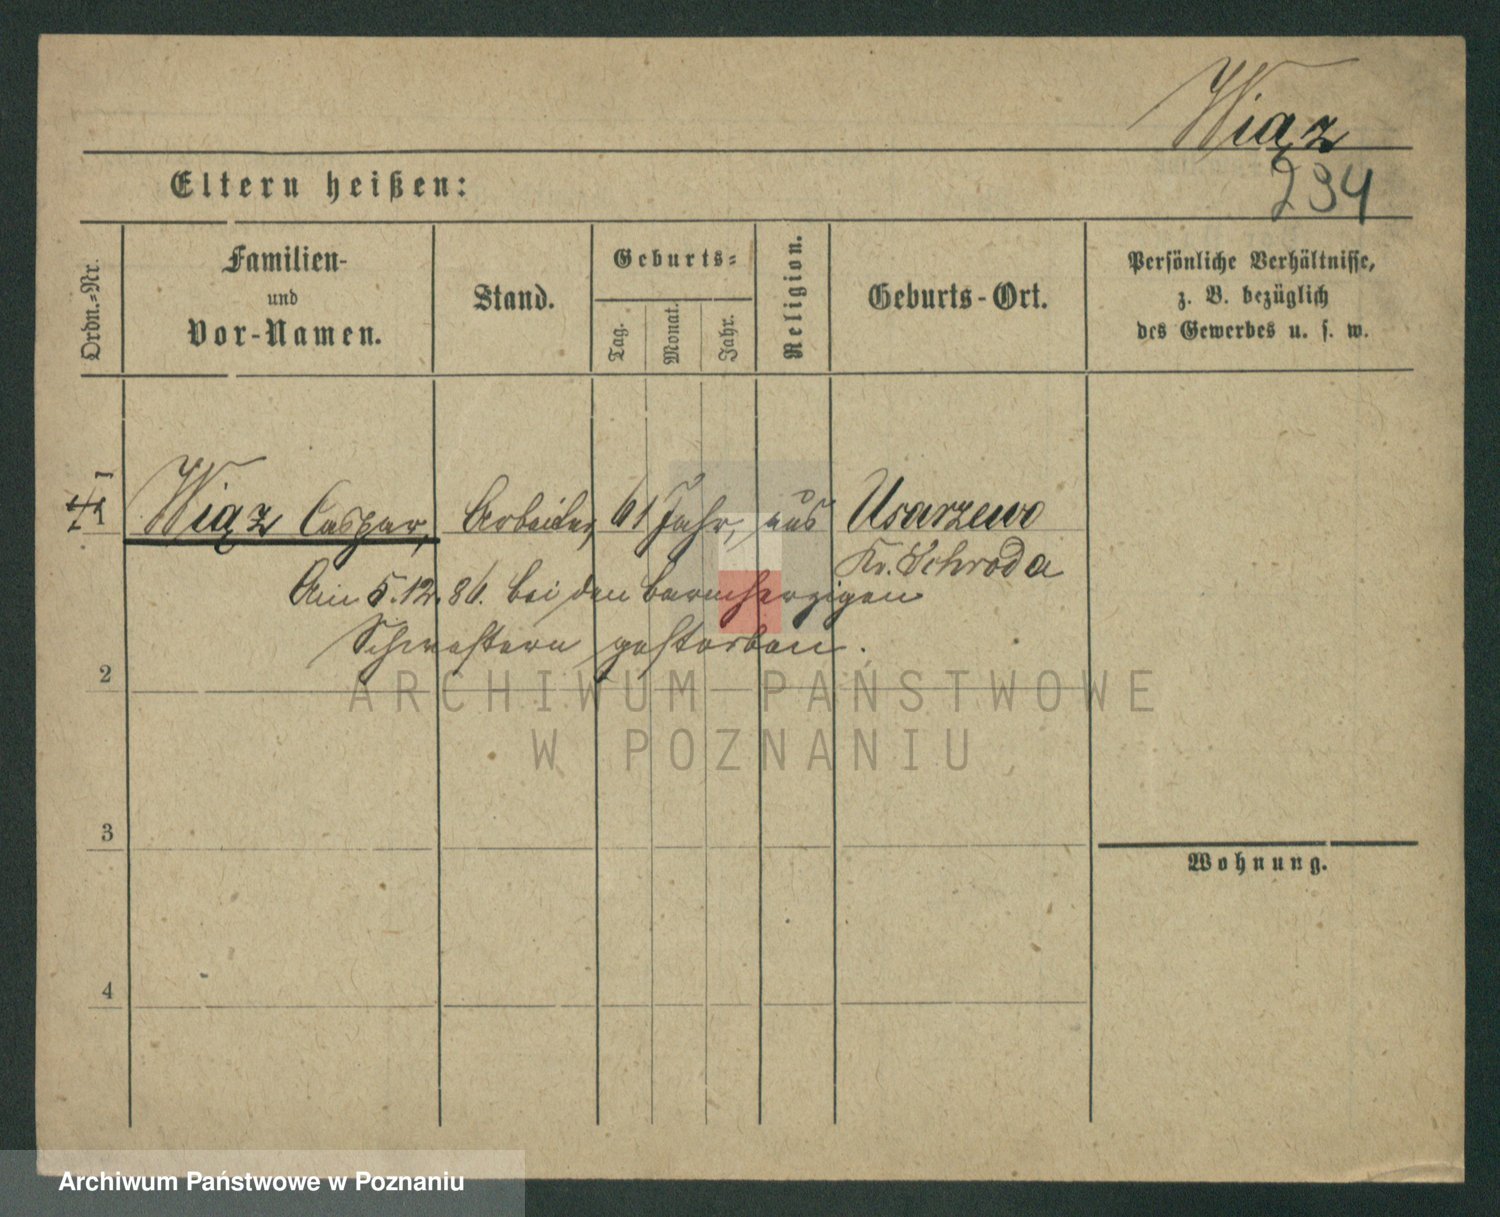 Wiąz
294
Eltern heißen:
Ordn.=Nr.
Familien-
und
Vor-Namen.
Stand.
Geburts=
Tag.
Monat.
Jahr.
Religion.
Geburts-Ort.
Persönliche Verhältnisse,
z. B. bezüglich
des Gewerbes u. s. w.
1
Wiąz Caspar, Arbeiter, 61 Jahr, aus Usarzewo
Kr. Schroda
Am 5.12.86. bei den barmherzigen
Schwestern gestorben.
2
3
4
Wohnung.
ARCHIWUM PAŃSTWOWE
W POZNANIU
Archiwum Państwowe w Poznaniu